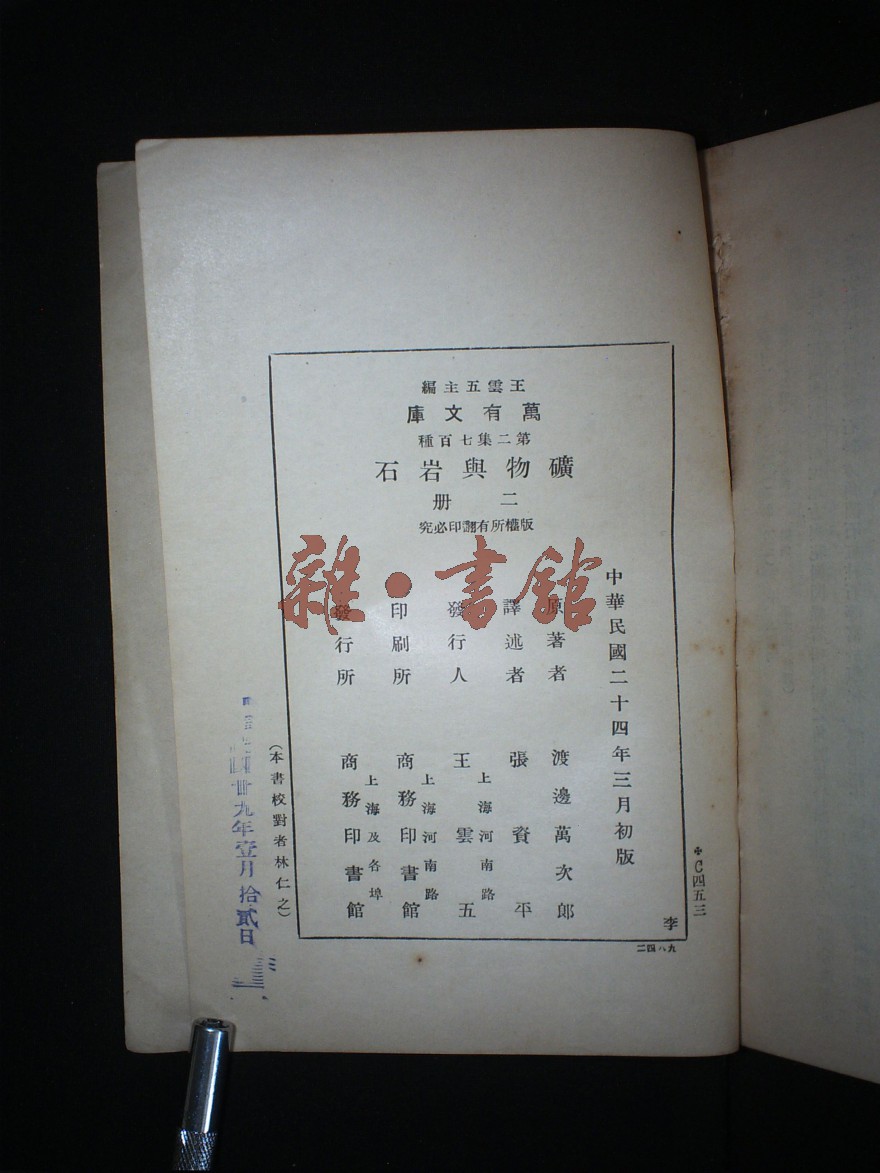 王雲五主編
萬有文庫
第二集七百種
礦物與岩石
二册
版權所有翻印必究
中華民國二十四年三月初版
原著者 渡邊萬次郎
譯述者 張資平
發行人 王雲五
上海河南路
印刷所 商務印書館
上海河南路
發行所 商務印書館
上海及各埠
(本書校對者林仁之)
✤C四五三
李
九八四二
雜·書館
廿九年壹月拾貳日